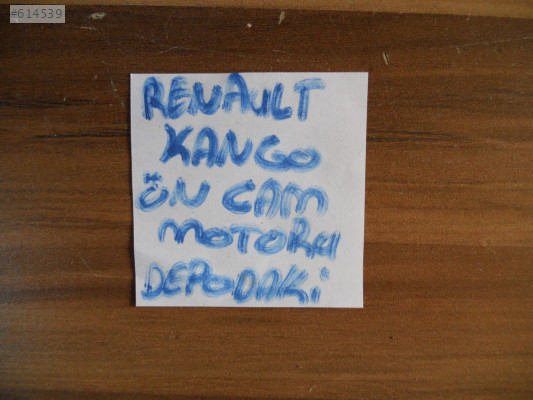 #614539
RENAULT
KANGO
ÖN CAM
MOTORU
DEPODAKi